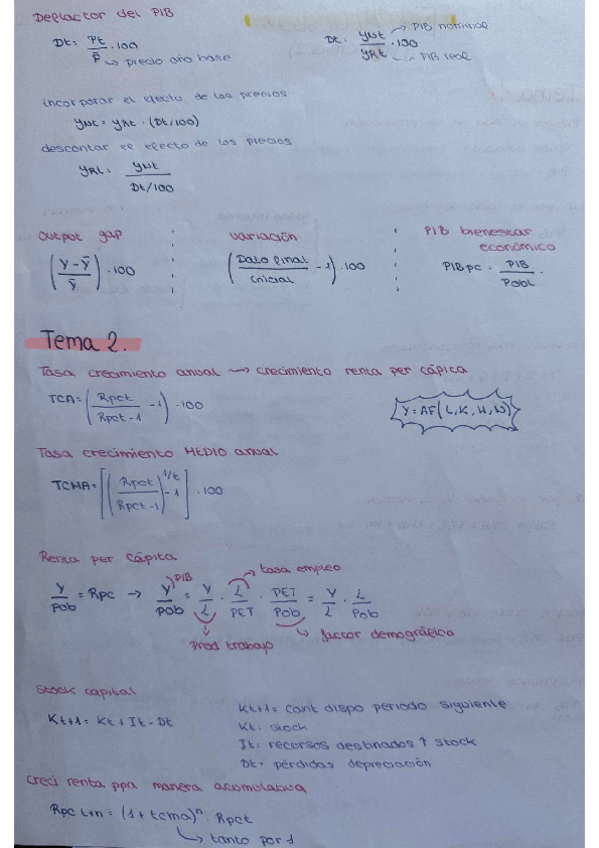 Deflactor del PIB
Dt = Pt / P̄ · 100
↳ precio año base
Dt = YNt / YRt · 100
→ PIB nominal
→ PIB real
incorporar el efecto de los precios
YNt = YRt · (Dt/100)
descontar el efecto de los precios
YRt = YNt / Dt/100
output gap
((Y - Ȳ) / Ȳ) · 100
variación
(Dato final / inicial - 1) · 100
PIB bienestar
económico
PIBpc = PIB / Pobl.
Tema 2.
Tasa crecimiento anual → crecimiento renta per cápita
TCA = (Rpct / Rpct-1 - 1) · 100
Y = AF(L, K, H, N)
Tasa crecimiento MEDIO anual
TCMA = [(Rpct / Rpct-1)^1/t - 1] · 100
Renta per cápita
Y / Pob = Rpc → Y / Pob = Y / L · L / PET · PET / Pob = Y / L · L / Pob
PIB
→ tasa empleo
Prod trabajo
→ factor demográfico
Stock capital
Kt+1 = Kt + It - Dt
Kt+1 = cant dispo periodo siguiente
Kt = stock
It = recursos destinados ↑ stock
Dt = pérdidas depreciación
Creci renta ppa manera acomulativa
Rpc t+n = (1 + tcma)^n · Rpct
↳ tanto por 1